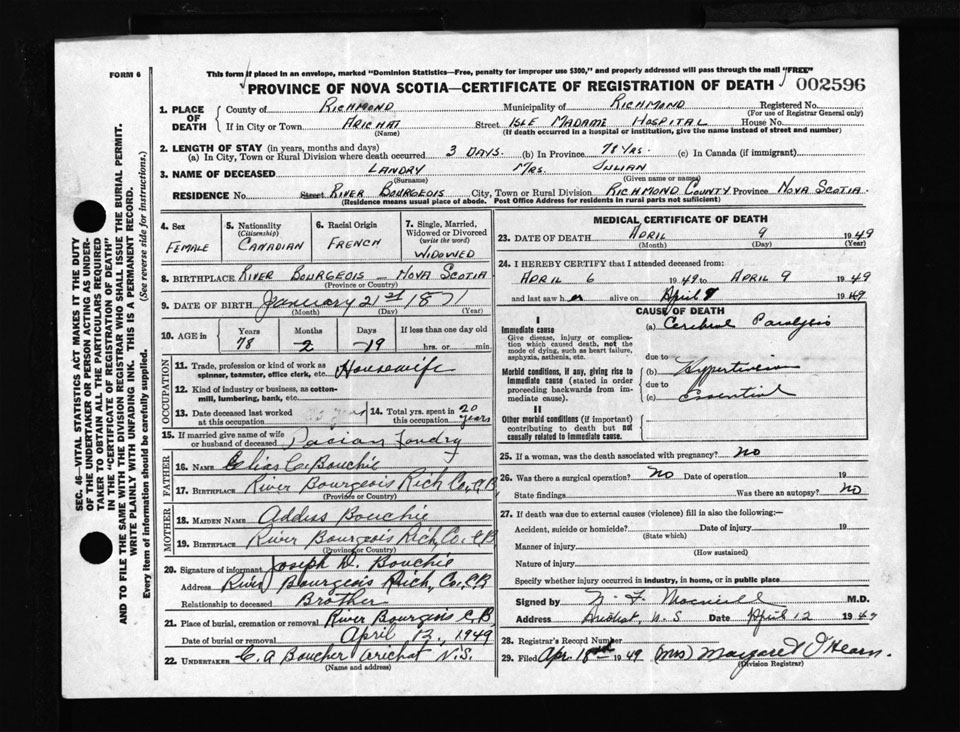 FORM 6
This form if placed in an envelope, marked "Dominion Statistics—Free, penalty for improper use $300," and properly addressed will pass through the mail "FREE"
PROVINCE OF NOVA SCOTIA—CERTIFICATE OF REGISTRATION OF DEATH 002596
1. PLACE OF DEATH County of RICHMOND Municipality of RICHMOND Registered No.
(For use of Registrar General only)
If in City or Town ARICHAT Street ISLE MADAME HOSPITAL House No.
(Name) (If death occurred in a hospital or institution, give the name instead of street and number)
2. LENGTH OF STAY (in years, months and days)
(a) In City, Town or Rural Division where death occurred 3 DAYS. (b) In Province 78 YRS. (c) In Canada (if immigrant)
3. NAME OF DECEASED LANDRY MRS. JULIAN
(Surname) (Given name or names)
RESIDENCE No. Street RIVER BOURGEOIS City, Town or Rural Division RICHMOND COUNTY Province NOVA SCOTIA
(Residence means usual place of abode. Post Office Address for residents in rural parts not sufficient)
4. Sex FEMALE
5. Nationality (Citizenship) CANADIAN
6. Racial Origin FRENCH
7. Single, Married, Widowed or Divorced (write the word) WIDOWED
8. BIRTHPLACE RIVER BOURGEOIS — NOVA SCOTIA
(Province or Country)
9. DATE OF BIRTH January 21st 1871
(Month) (Day) (Year)
10. AGE in Years Months Days If less than one day old
78 2 19 hrs. or min.
OCCUPATION
11. Trade, profession or kind of work as spinner, teamster, office clerk, etc. Housewife
12. Kind of industry or business, as cotton-mill, lumbering, bank, etc.
13. Date deceased last worked at this occupation
14. Total yrs. spent in this occupation 20 years
15. If married give name of wife or husband of deceased Landry
FATHER
16. Name Elias C. Bouchie
17. Birthplace River Bourgeois Rich. Co., C.B.
(Province or Country)
MOTHER
18. Maiden Name Bouchie
19. Birthplace River Bourgeois Rich. Co. C.B.
(Province or Country)
20. Signature of informant Joseph D. Bouchie
Address River Bourgeois Rich, Co., C.B.
Relationship to deceased Brother
21. Place of burial, cremation or removal River Bourgeois C.B.
Date of burial or removal April 12, 1949
22. UNDERTAKER C. A Boucher Arichat N.S.
(Name and address)
MEDICAL CERTIFICATE OF DEATH
23. DATE OF DEATH APRIL 9 1949
(Month) (Day) (Year)
24. I HEREBY CERTIFY that I attended deceased from:
APRIL 6 1949 to APRIL 9 1949
and last saw h er alive on April 9 1949
CAUSE OF DEATH
I
Immediate cause
Give disease, injury or complication which caused death, not the mode of dying, such as heart failure, asphyxia, asthenia, etc.
(a) Cerebral Paralysis
due to
Morbid conditions, if any, giving rise to immediate cause (stated in order proceeding backwards from immediate cause).
(b) Hypertension
due to
(c) Essential
II
Other morbid conditions (if important) contributing to death but not causally related to immediate cause.
25. If a woman, was the death associated with pregnancy? No
26. Was there a surgical operation? No Date of operation 19
State findings Was there an autopsy? No
27. If death was due to external causes (violence) fill in also the following:—
Accident, suicide or homicide? Date of injury 19
(State which)
Manner of injury
(How sustained)
Nature of injury
Specify whether injured in industry, in home, or in public place
Signed by M.D.
Address Arichat, N.S Date April 12 1949
28. Registrar's Record Number
29. Filed Apr. 1949 (Mrs) Margaret O'Hearn.
(Division Registrar)
SEC. 46—VITAL STATISTICS ACT MAKES IT THE DUTY
OF THE UNDERTAKER OR PERSON ACTING AS UNDERTAKER TO OBTAIN ALL THE PARTICULARS REQUIRED
IN THE "CERTIFICATE OF REGISTRATION OF DEATH"
AND TO FILE THE SAME WITH THE DIVISION REGISTRAR WHO SHALL ISSUE THE BURIAL PERMIT.
WRITE PLAINLY WITH UNFADING INK. THIS IS A PERMANENT RECORD.
Every item of information should be carefully supplied. (See reverse side for instructions.)